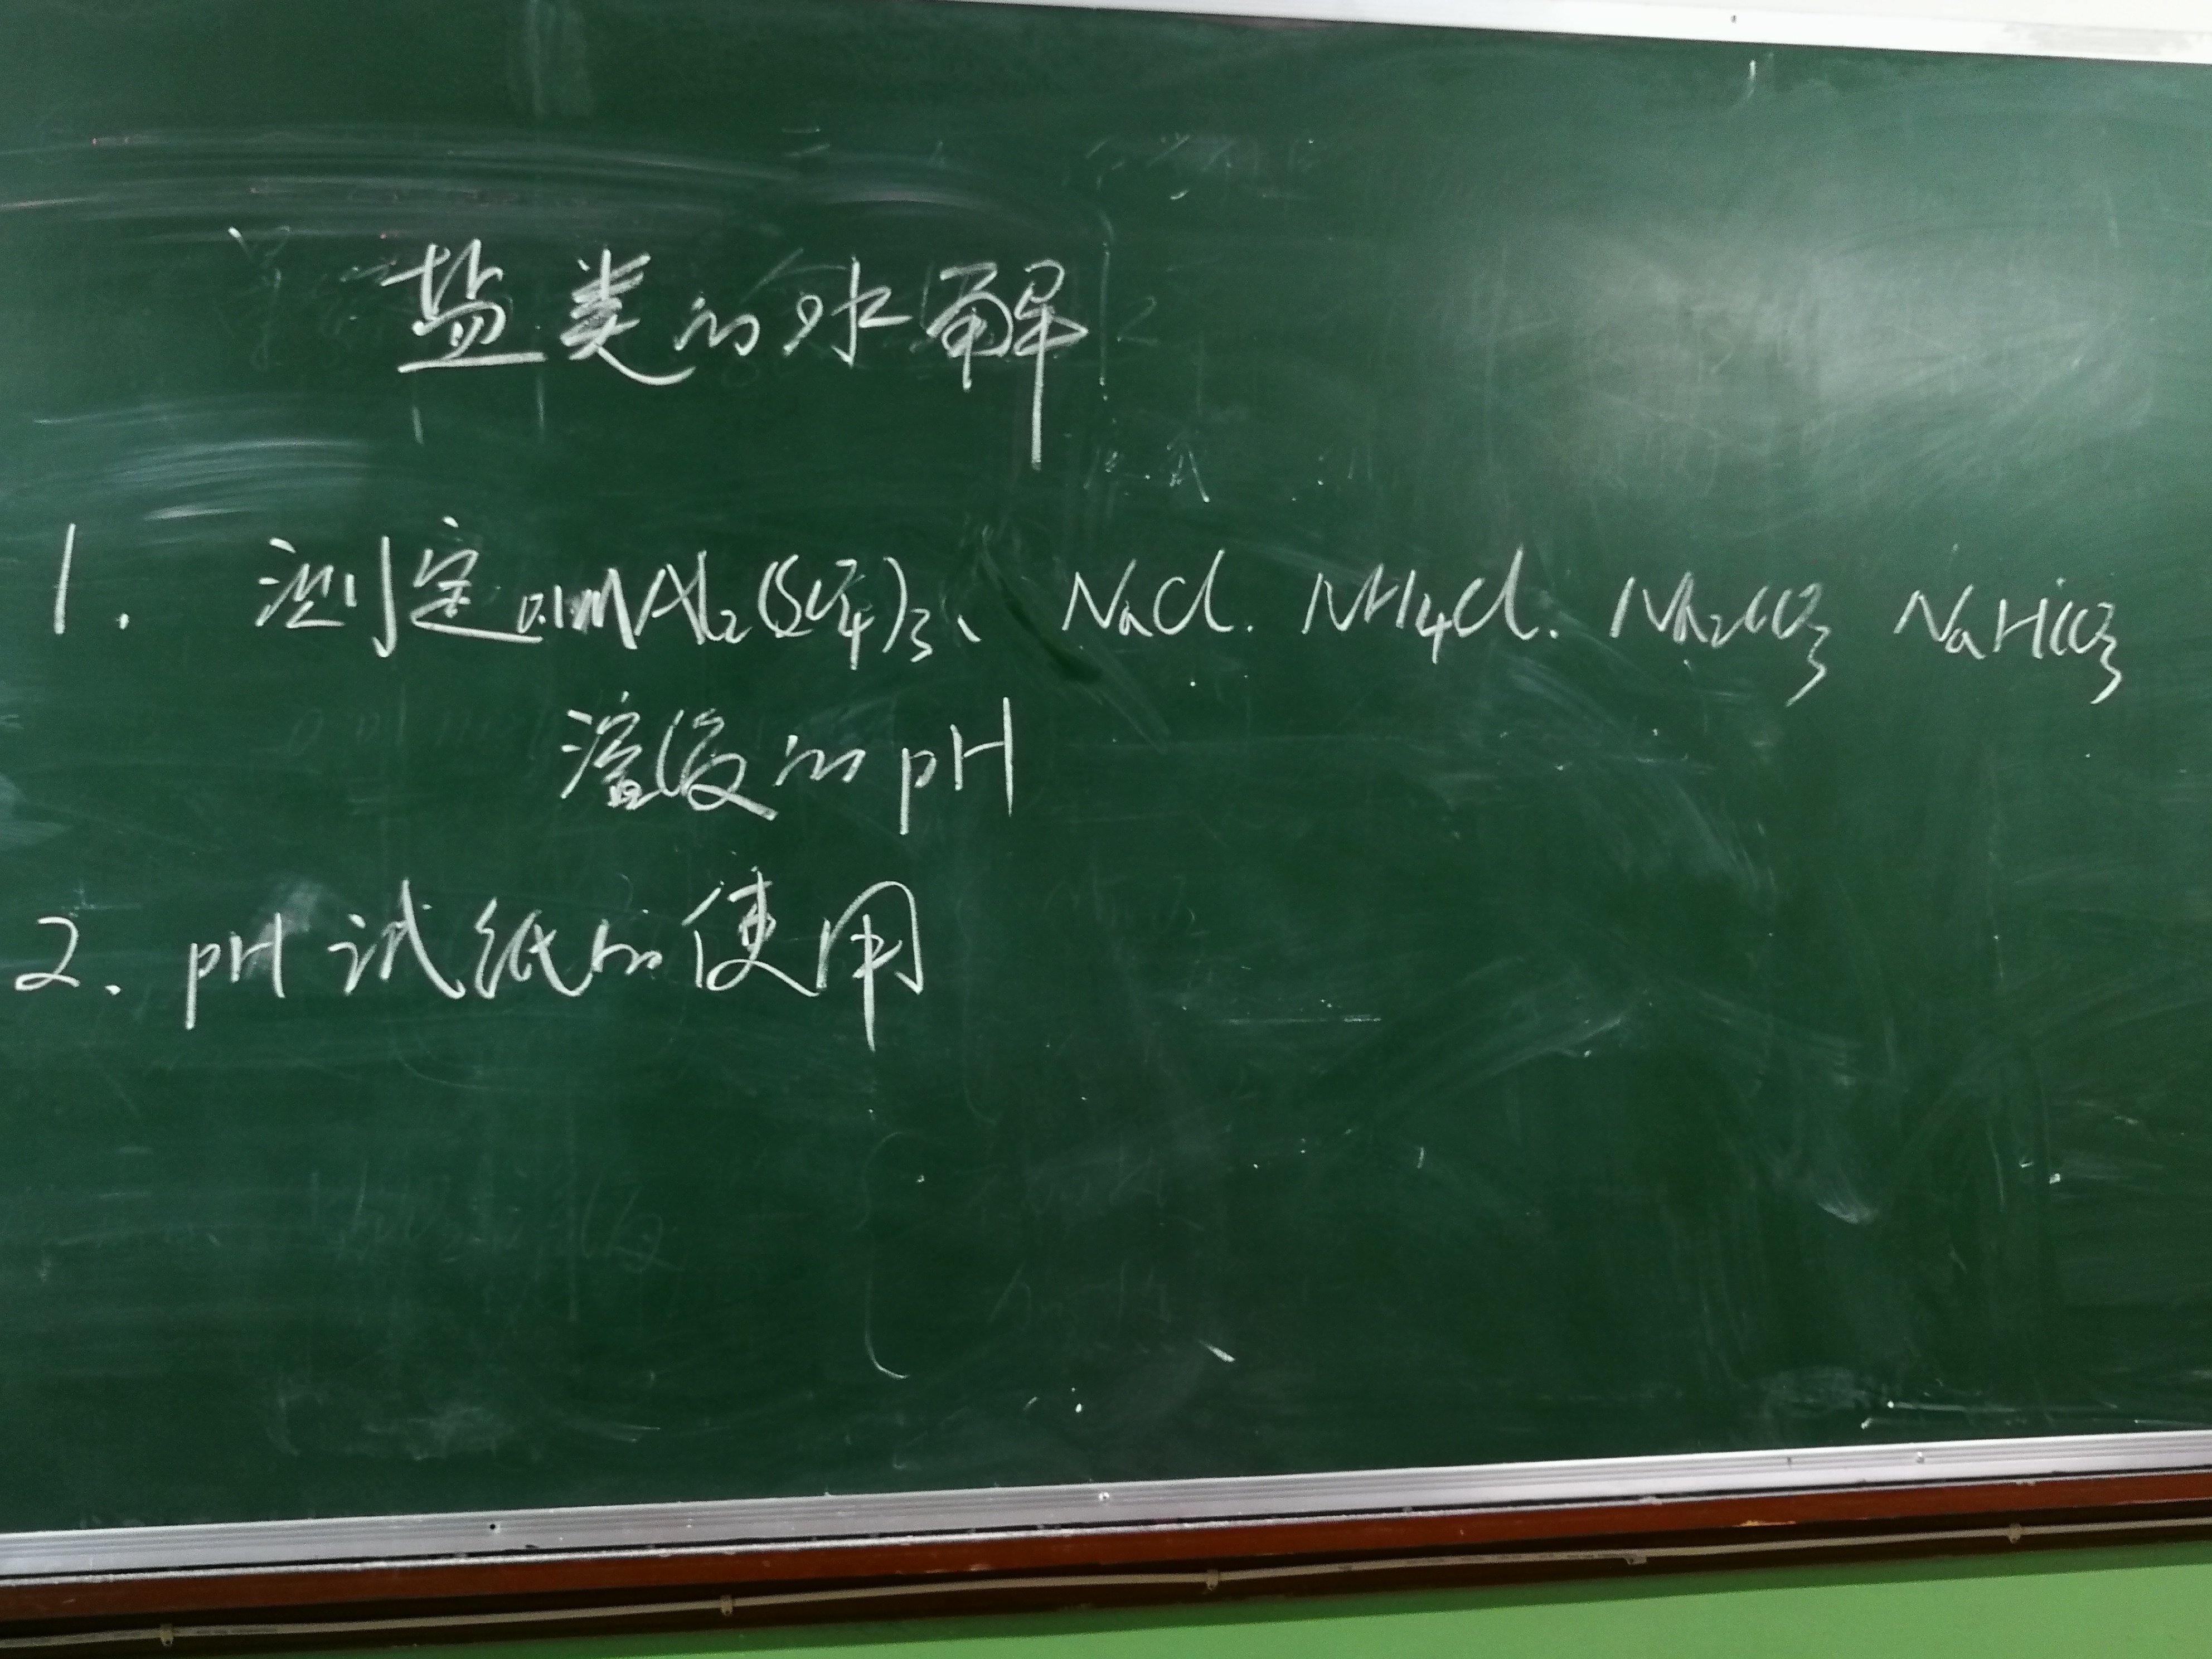 盐类的水解
1. 测定0.1mAl₂(SO₄)₃、NaCl. NH₄Cl. Na₂CO₃ NaHCO₃
溶液的pH
2. pH试纸的使用